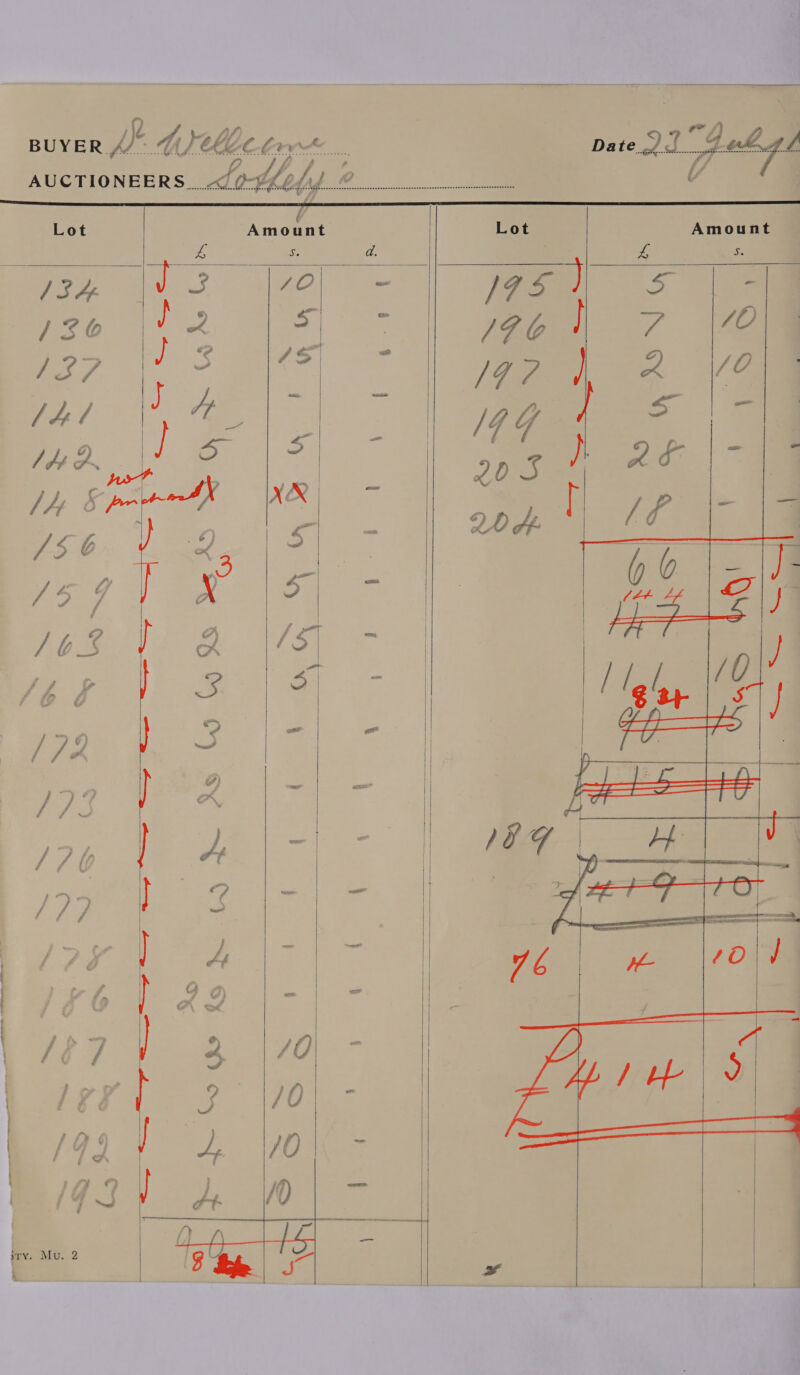 BUYER Dr Wellcome Date 23 July
AUCTIONEERS Sotheby
Lot Amount Lot Amount
£ s. d. £ s.
134 3 10 - 195 5 -
136 2 5 - 196 7 10
137 3 15 - 197 2 10
141 4 - - 199 5 -
142 5 5 - 203 28 - -
not
145 - 204 18 - -
156 2 5 - 66 -
159 3 5 -
163 2 15 - 114 10
168 3 5 - 5
172 3 - -
173 2 - -
176 4 - - 189 4
177 3 - - 10
178 4 - - 76 4 10
186 22 - -
187 2 10 - 5
188 3 10 -
192 4 10 -
193 4 10 -
90 15 -
5